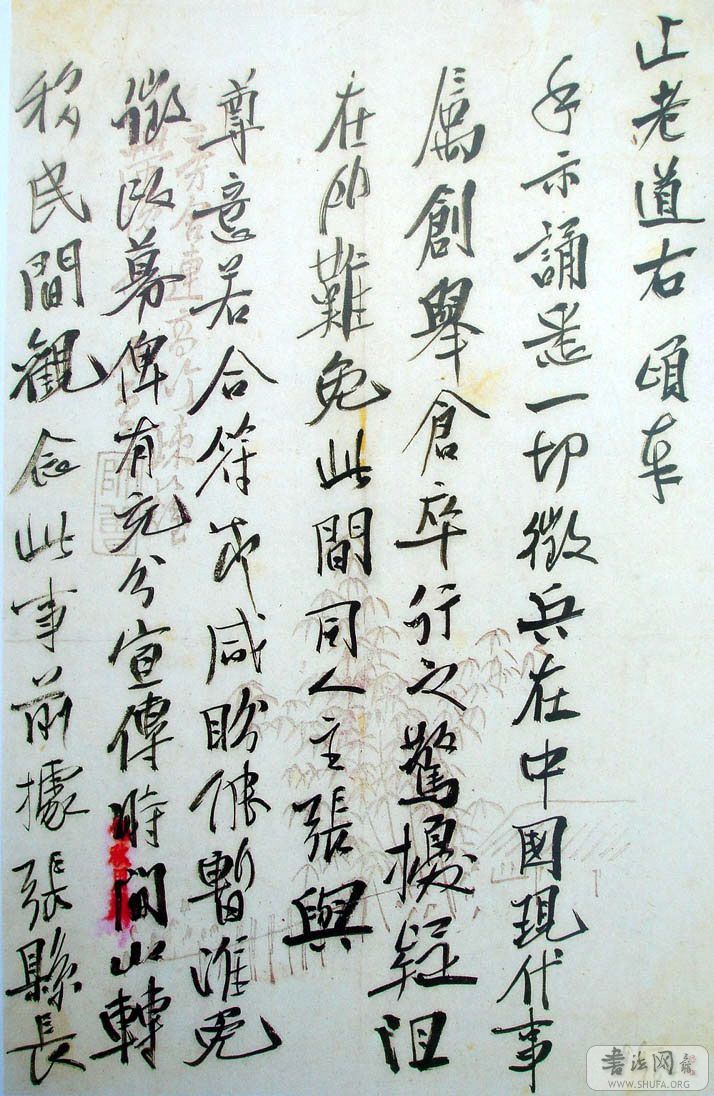 止老道右頃奉
手示誦悉一切徵兵在中國現代事
屬創舉倉卒行之驚擾疑阻
在所難免此間同人主張與
尊意若合符節咸盼能暫准免
徵改募俾有充分宣傳時間以轉
移民間觀念此事前據張縣長
书法网
WWW.SHUFA.ORG